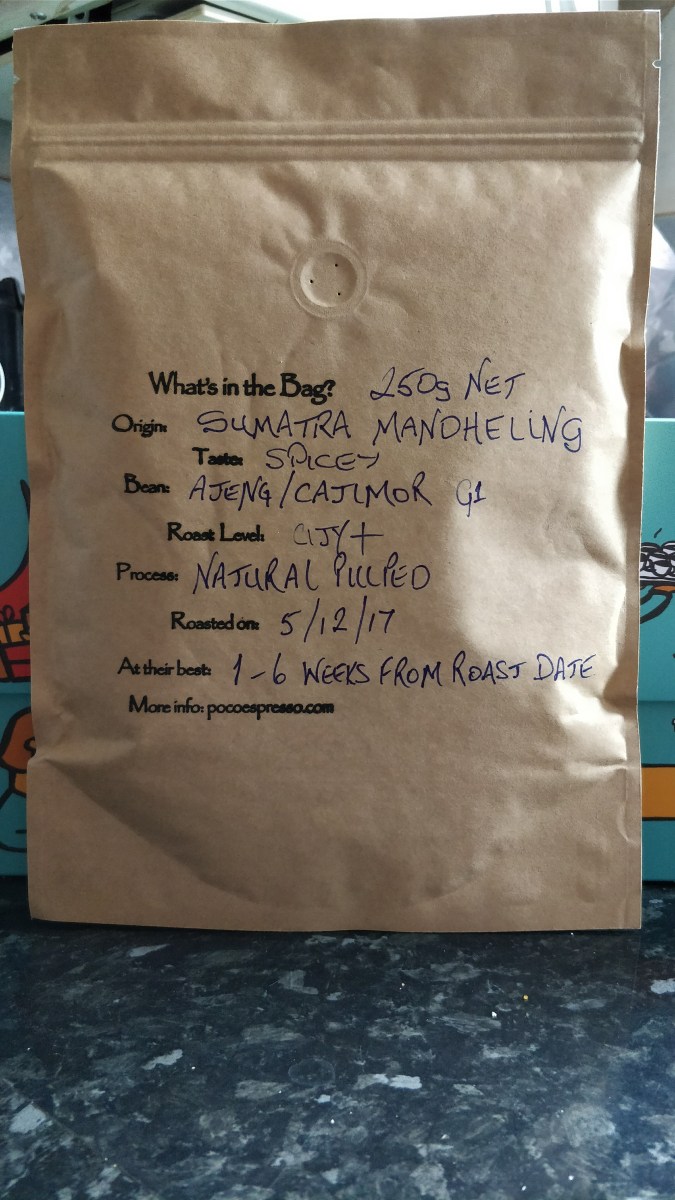 What's in the Bag? 250g NET
Origin: SUMATRA MANDHELING
Taste: SPICEY
Bean: AJENG/CATIMOR G1
Roast Level: CITY+
Process: NATURAL PULPED
Roasted on: 5/12/17
At their best: 1-6 WEEKS FROM ROAST DATE
More info: pocoespresso.com